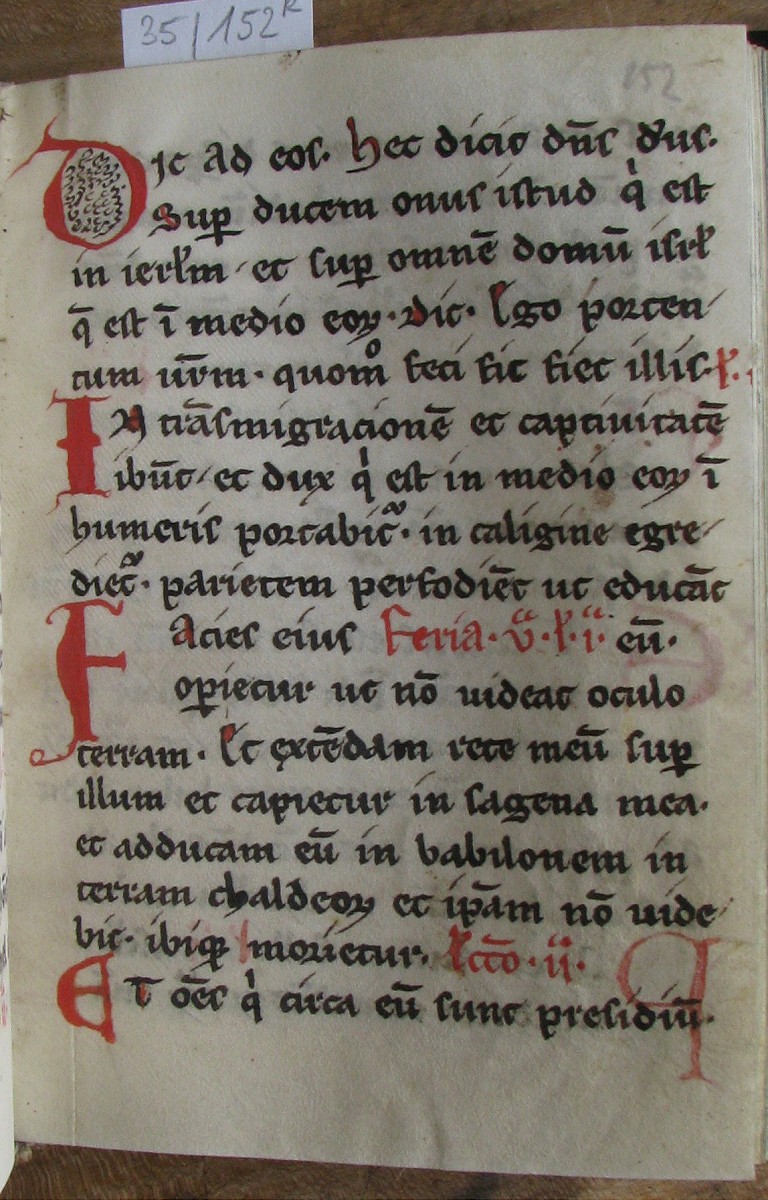 35/152R
152
Dic ad eos. Hec dicit dn̄s d's.
Sup̱ ducem onus istud q̇ est
in ierł'm et sup̱ omnē domū isrł
q̄ est ī medio eoꝝ. dic. Ego porten
tum ur̄m. quom̊ feci sic fiet illis. ł.
In trāsmigracionē et captiuitatē
ibūt et dux q̇ est in medio eoꝝ ī
humeris portabit᷑. in caligine egre
diet᷑. parietem perfodiēt ut educāt
eū.
Facies eius Feria. v.ª ł. i.ª
op̱ietur ut nō uideat oculo
terram. Et extēdam rete meū sup̱
illum et capietur in sagena mea.
et adducam eū in babilonem in
terram chaldeoꝝ et ip̄am nō uide
bit. ibiqꝫ morietur. Lcc̄o. ii.
Et oēs q̇ circa eū sunt presidiū.